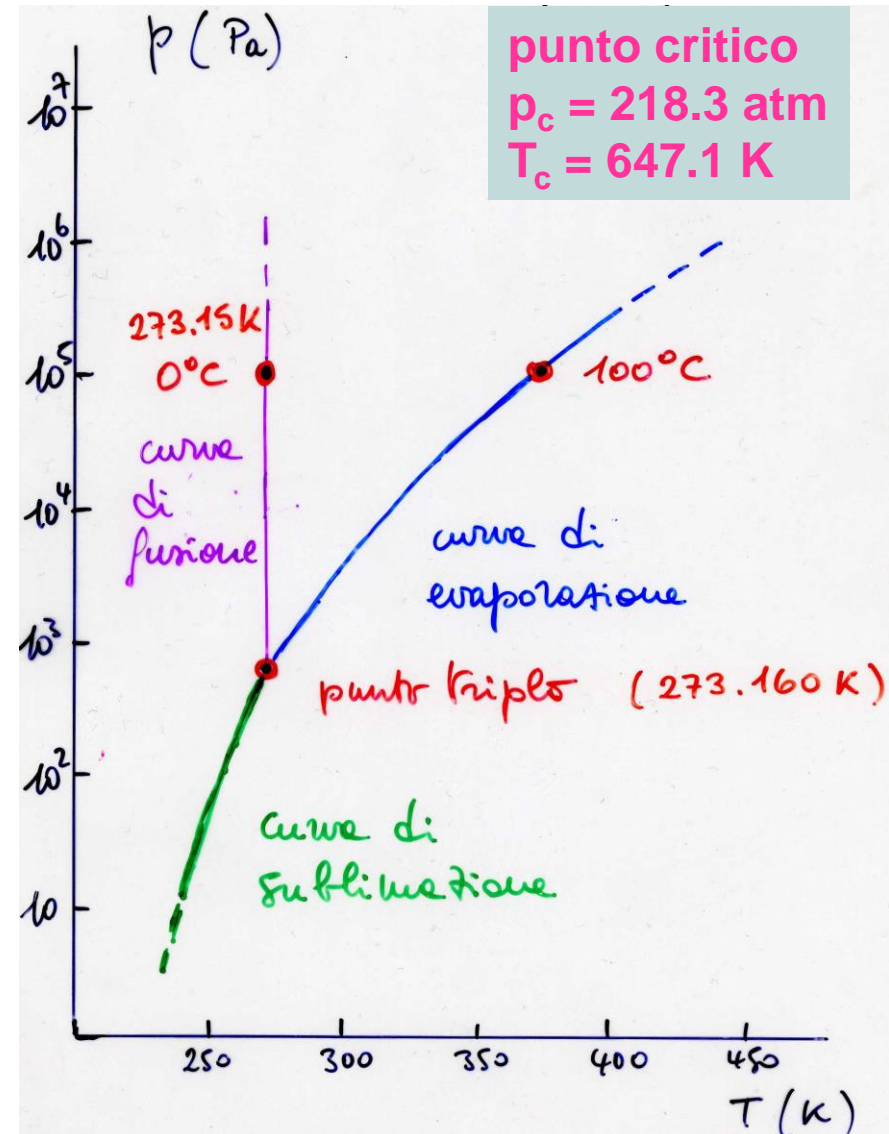 p (Pa)
punto critico
p_c = 218.3 atm
T_c = 647.1 K
10^7
10^6
273.15K
0°C
10^5
100°C
curva
di
fusione
10^4
curva di
evaporazione
10^3
punto triplo (273.160 K)
10^2
curva di
sublimazione
10
250 300 350 400 450
T (K)